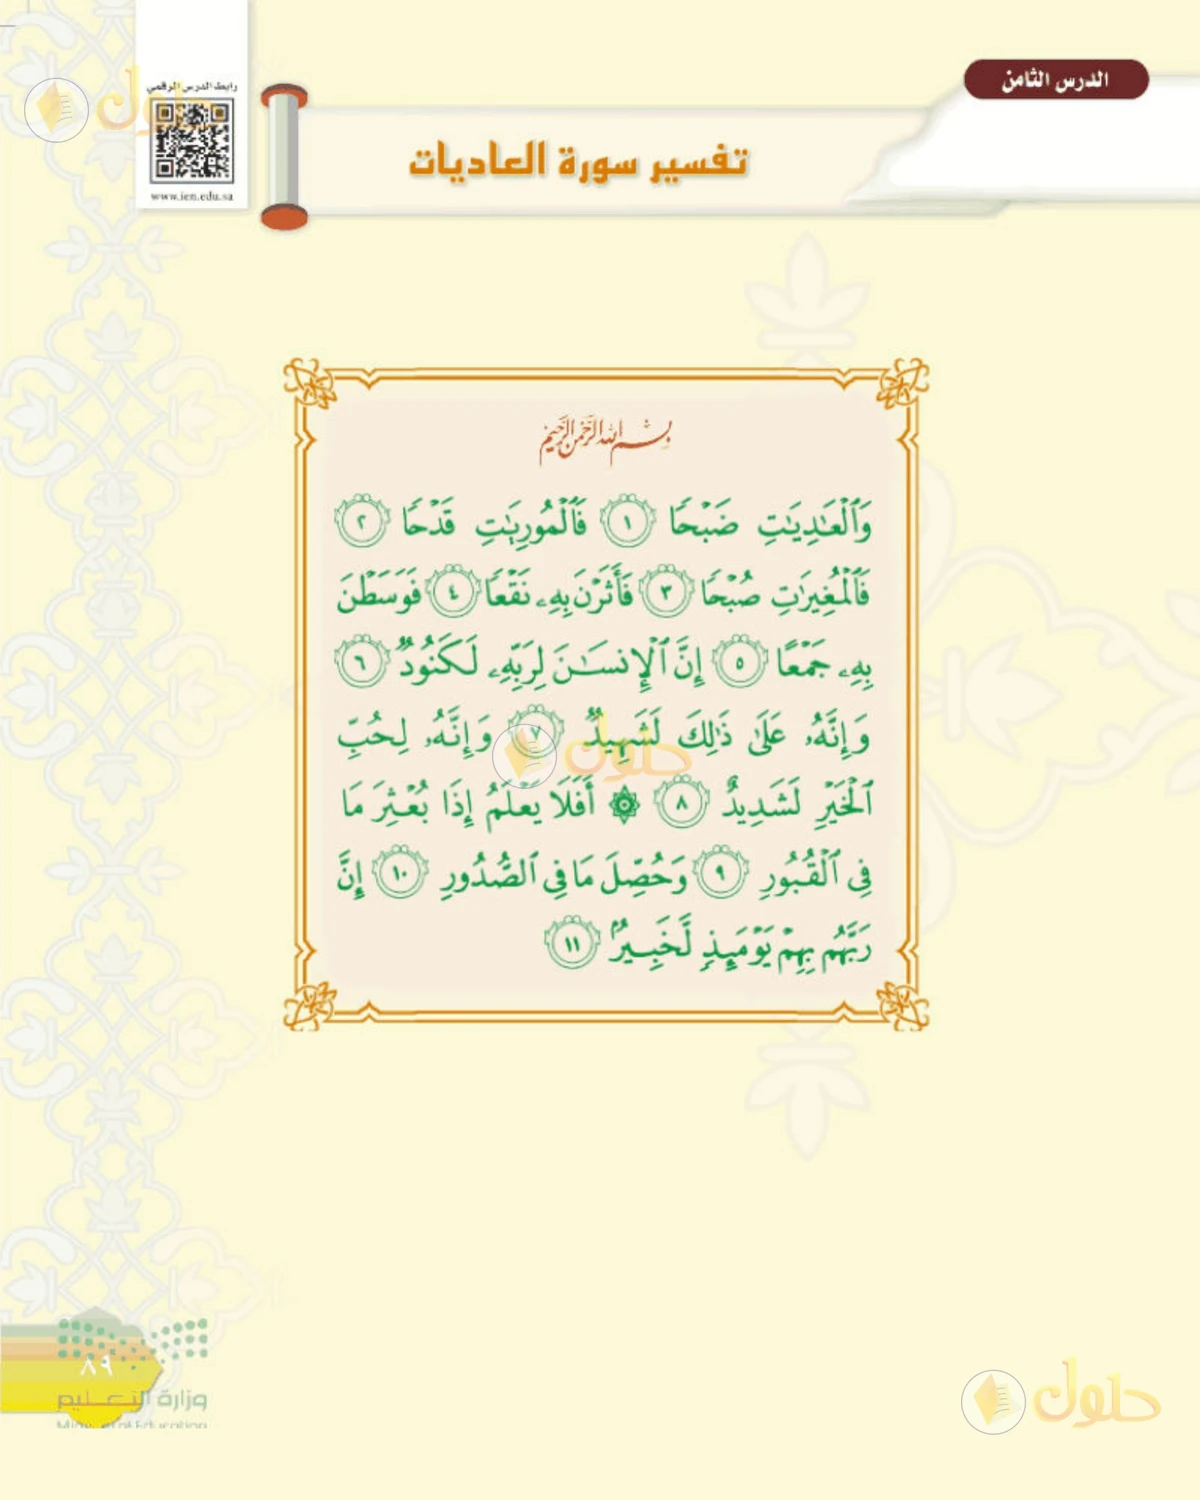 الدرس الثامن
رابط الدرس الرقمي
www.ien.edu.sa
تفسير سورة العاديات
بِسْمِ اللهِ الرَّحْمَنِ الرَّحِيمِ
وَٱلْعَٰدِيَٰتِ ضَبْحًا ١ فَٱلْمُورِيَٰتِ قَدْحًا ٢
فَٱلْمُغِيرَٰتِ صُبْحًا ٣ فَأَثَرْنَ بِهِۦ نَقْعًا ٤ فَوَسَطْنَ
بِهِۦ جَمْعًا ٥ إِنَّ ٱلْإِنسَٰنَ لِرَبِّهِۦ لَكَنُودٌ ٦
وَإِنَّهُۥ عَلَىٰ ذَٰلِكَ لَشَهِيدٌ ٧ وَإِنَّهُۥ لِحُبِّ
ٱلْخَيْرِ لَشَدِيدٌ ٨ ۞ أَفَلَا يَعْلَمُ إِذَا بُعْثِرَ مَا
فِي ٱلْقُبُورِ ٩ وَحُصِّلَ مَا فِي ٱلصُّدُورِ ١٠ إِنَّ
رَبَّهُم بِهِمْ يَوْمَئِذٍ لَّخَبِيرٌۢ ١١
حلول
حلول
حلول
٨٩
وزارة التعليم
Ministry of Education